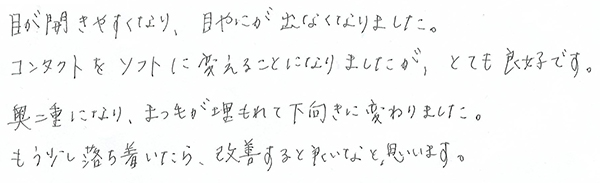 目が開きやすくなり、目やにが出なくなりました。
コンタクトをソフトに変えることになりましたが、とても良好です。
奥二重になり、まつ毛が埋もれて下向きに変わりました。
もう少し落ち着いたら、改善すると良いなと思います。